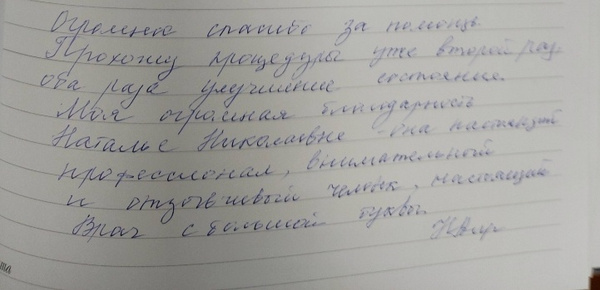 Огромное спасибо за помощь.
Прохожу процедуры уже второй раз,
оба раза улучшение состояние.
Моя огромная благодарность
Наталье Николаевне - она настоящий
профессионал, внимательный
и отзывчивый человек, настоящий
Врач с большой буквы.
та